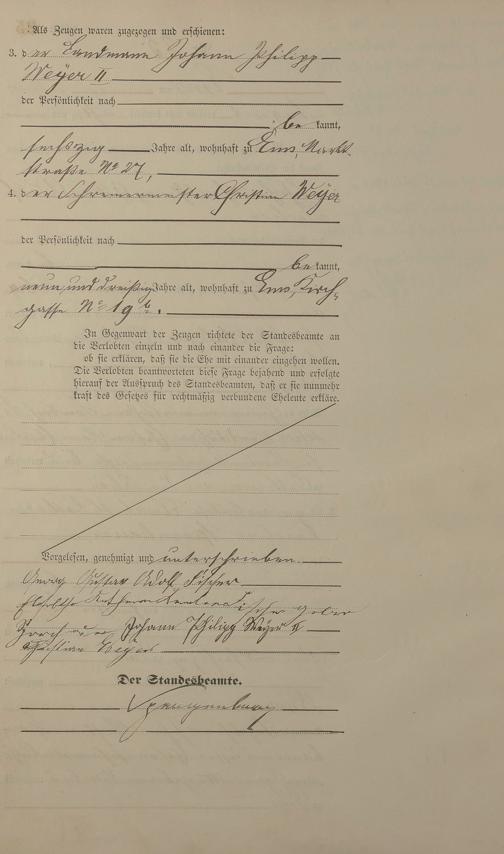 Als Zeugen waren zugezogen und erschienen:
3. der Landmann Johann Philipp
Weyer II
der Persönlichkeit nach
bekannt,
sechszig Jahre alt, wohnhaft zu Ems, Markt-
straße No 27,
4. der Schreinermeister Christian Weyer
der Persönlichkeit nach
bekannt,
neun und dreißig Jahre alt, wohnhaft zu Ems, Kirch-
gasse No 19 b.
In Gegenwart der Zeugen richtete der Standesbeamte an
die Verlobten einzeln und nach einander die Frage:
ob sie erklären, daß sie die Ehe mit einander eingehen wollen.
Die Verlobten beantworteten diese Frage bejahend und erfolgte
hierauf der Ausspruch des Standesbeamten, daß er sie nunmehr
kraft des Gesetzes für rechtmäßig verbundene Eheleute erkläre.
Vorgelesen, genehmigt und unterschrieben.
Georg Gustav Adolf Fischer
Fischer
Johann Philipp Weyer II
Christian Weyer
Der Standesbeamte.
Spangenberg